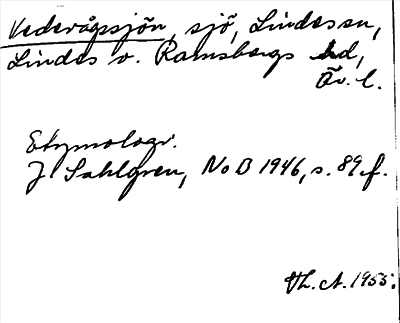 Vedevågssjön, sjö, Lindes sn,
Lindes o. Ramsbergs hd,
Ör. l.
Etymologi.
J Sahlgren, NoB 1946, s. 89 f.
Th. A. 1955.